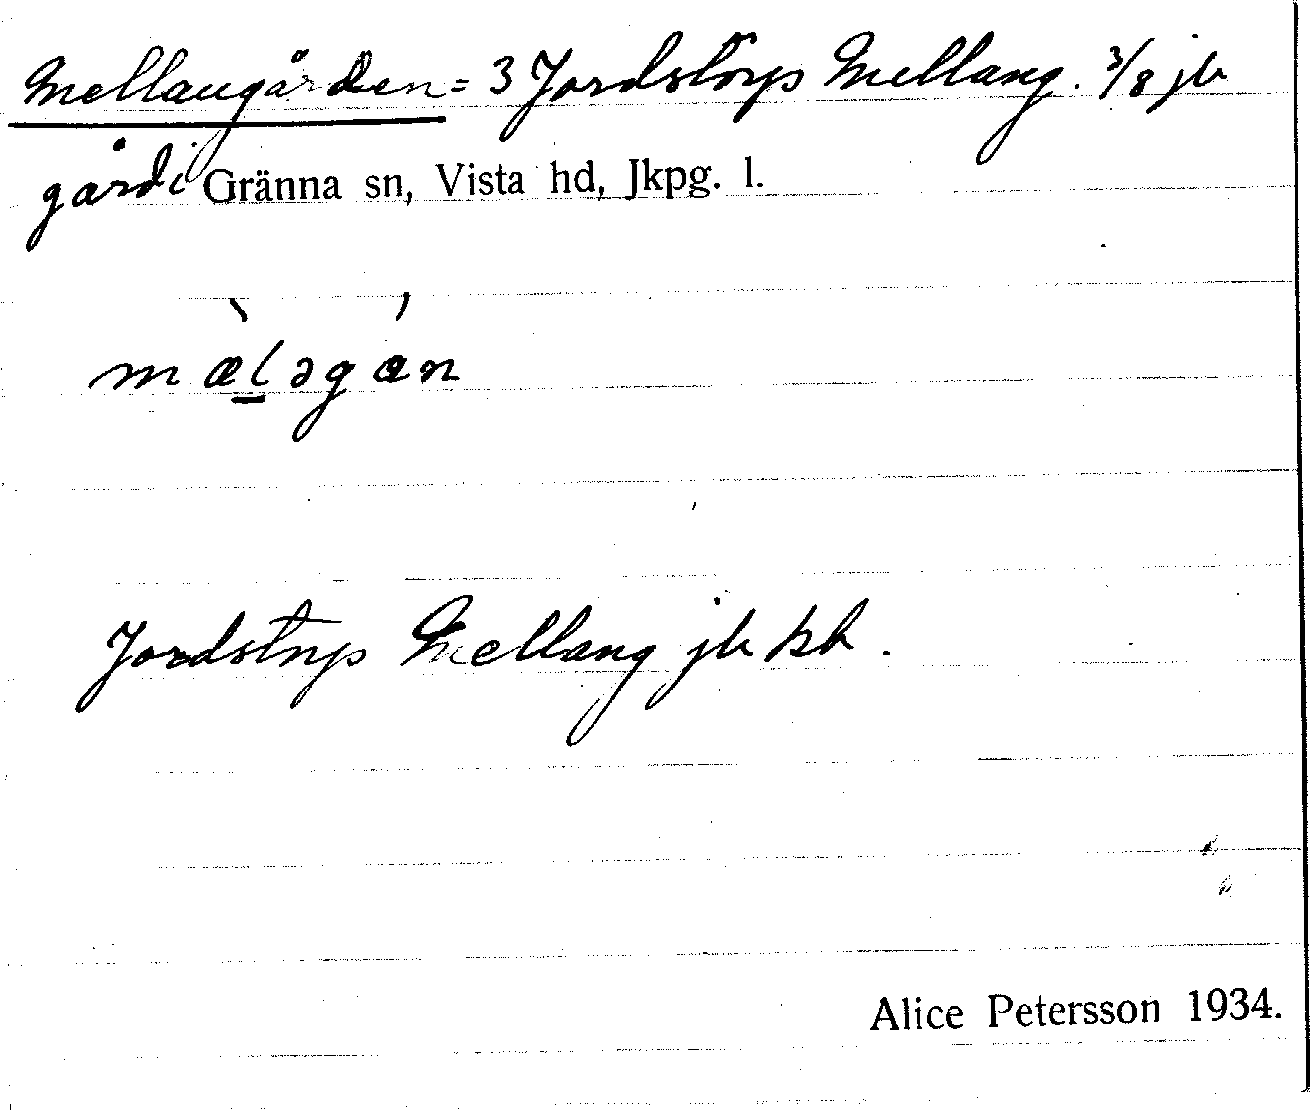 Mellangården = 3 Jordstorps Mellang. 3/8 jb
gård i Gränna sn, Vista hd, Jkpg. l.
mæ̀ləgán
Jordstorps Mellang jb kb.
Alice Petersson 1934.